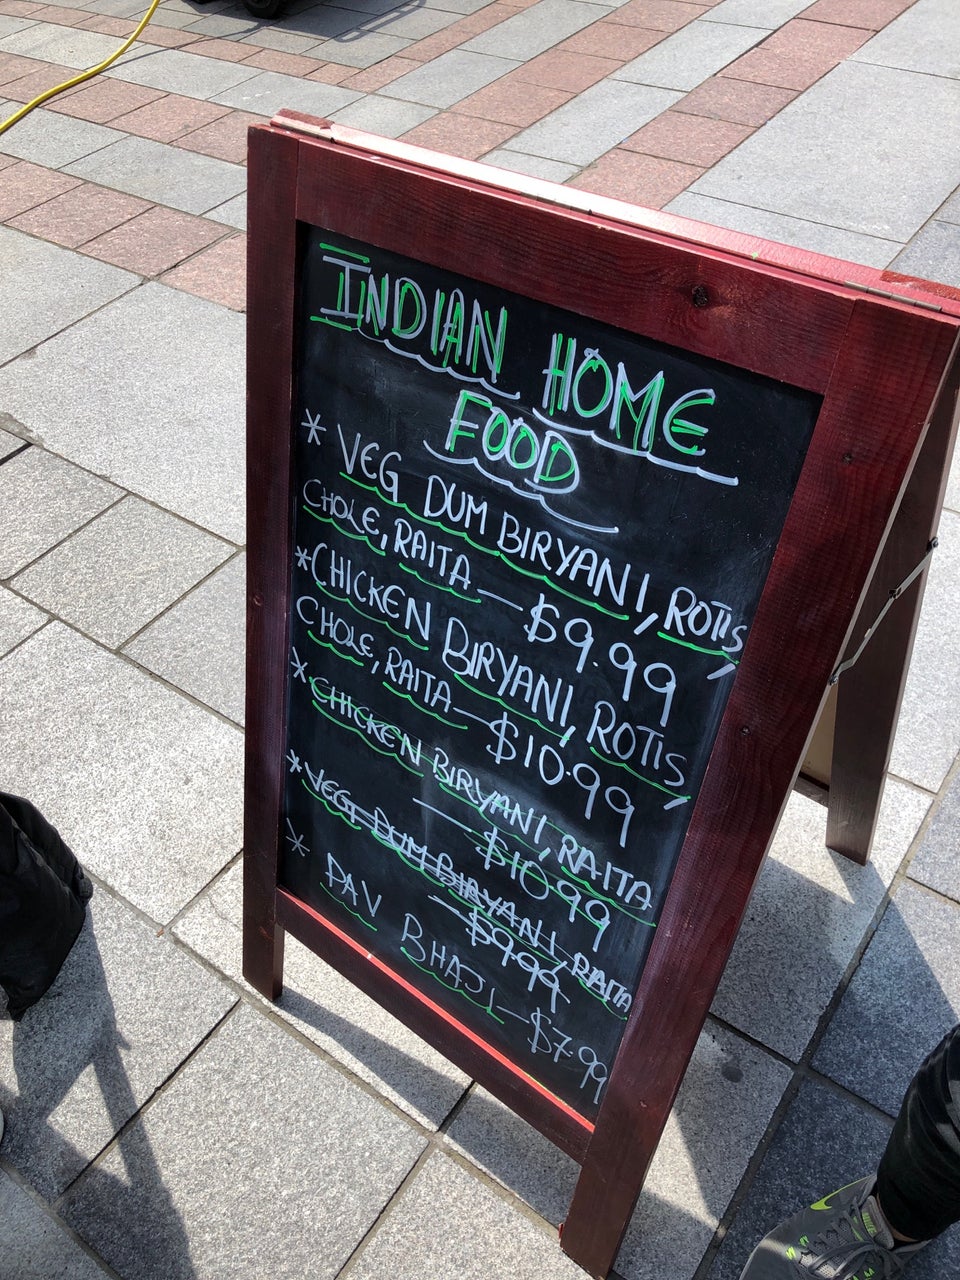 INDIAN HOME
FOOD
* VEG DUM BIRYANI, ROTIS,
CHOLE, RAITA — $9.99
* CHICKEN BIRYANI, ROTIS,
CHOLE, RAITA — $10.99
* CHICKEN BIRYANI, RAITA
— $10.99
* VEG DUM BIRYANI, RAITA
— $9.99
* PAV BHAJI — $7.99